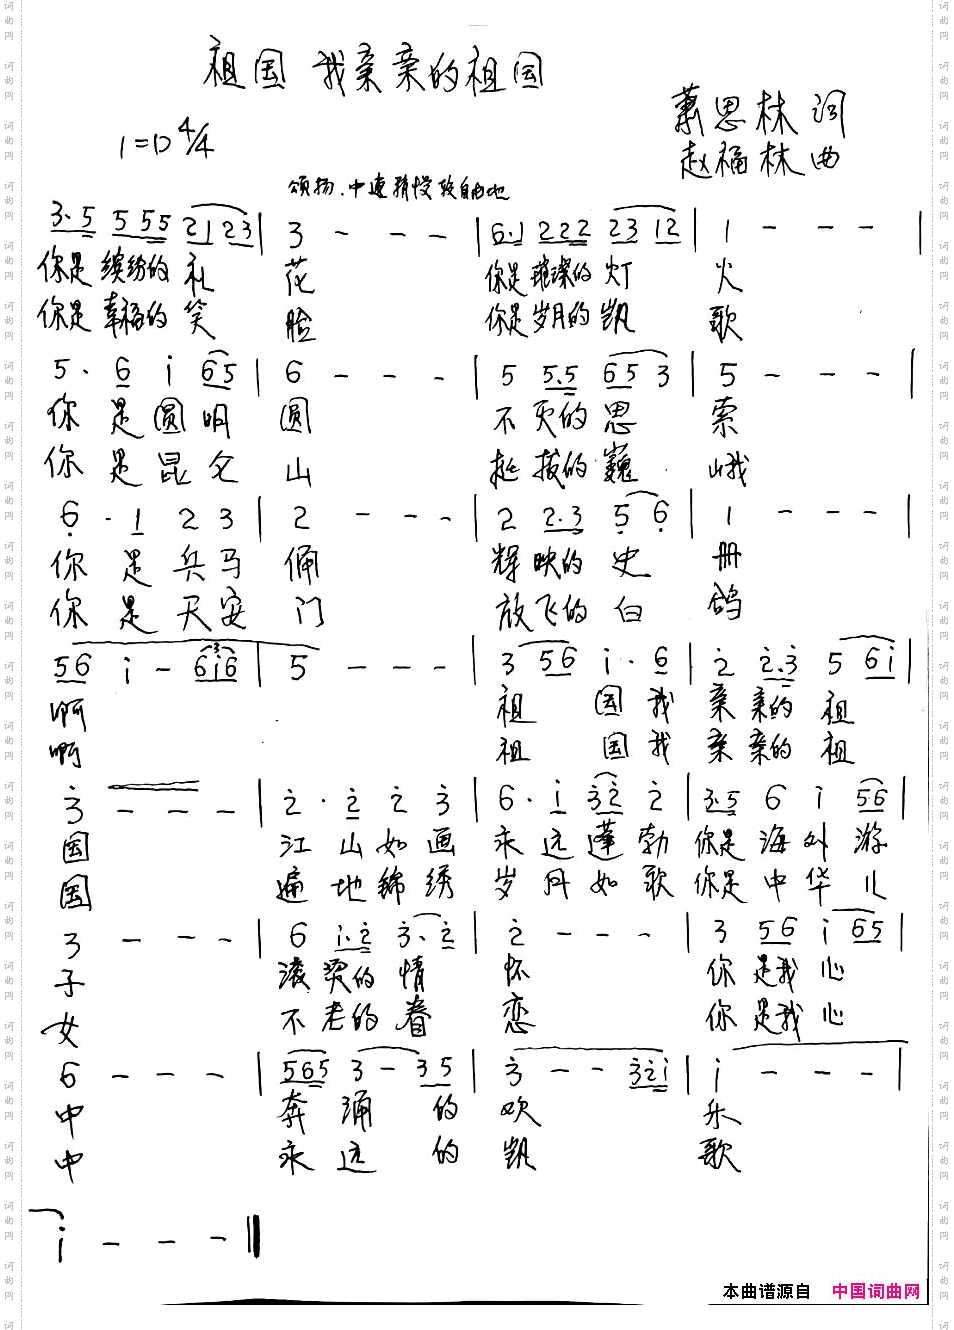 祖国 我亲亲的祖国
萧思林 词
1=D 4/4
赵福林 曲
颂扬.中速稍慢较自由地
3·5 555 2123 | 3 - - - | 6·1 222 23 12 | 1 - - - |
你是缤纷的礼 花 你是璀璨的灯 火
你是幸福的笑 脸 你是岁月的凯 歌
5· 6 i 65 | 6 - - - | 5 5·5 65 3 | 5 - - - |
你 是 圆 明 圆 不 灭的 思 索
你 是 昆 仑 山 挺 拔的 巍 峨
6· 1 2 3 | 2 - - - | 2 2·3 5 6 | 1 - - - |
你 是 兵 马 俑 辉 映的 史 册
你 是 天 安 门 放 飞的 白 鸽
56 i - 6i6 | 5 - - - | 3 56 i· 6 | 2 2·3 5 6i |
啊 祖 国 我 亲 亲的 祖
啊 祖 国 我 亲 亲的 祖
3 - - - | 2· 2 2 3 | 6· i 32 2 | 3·5 6 i 56 |
国 江 山 如 画 永 远 蓬 勃 你是 海 外 游
国 遍 地 锦 绣 岁 月 如 歌 你是 中 华 儿
3 - - - | 6 i·2 3·2 | 2 - - - | 3 56 i 65 |
子 滚 烫的 情 怀 你 是我 心
女 不 老的 眷 恋 你 是我 心
6 - - - | 565 3 - 35 | 3 - - 32i | i - - - |
中 奔 涌 的 欢 乐
中 永 远 的 凯 歌
i - - - ‖
本曲谱源自 中国词曲网